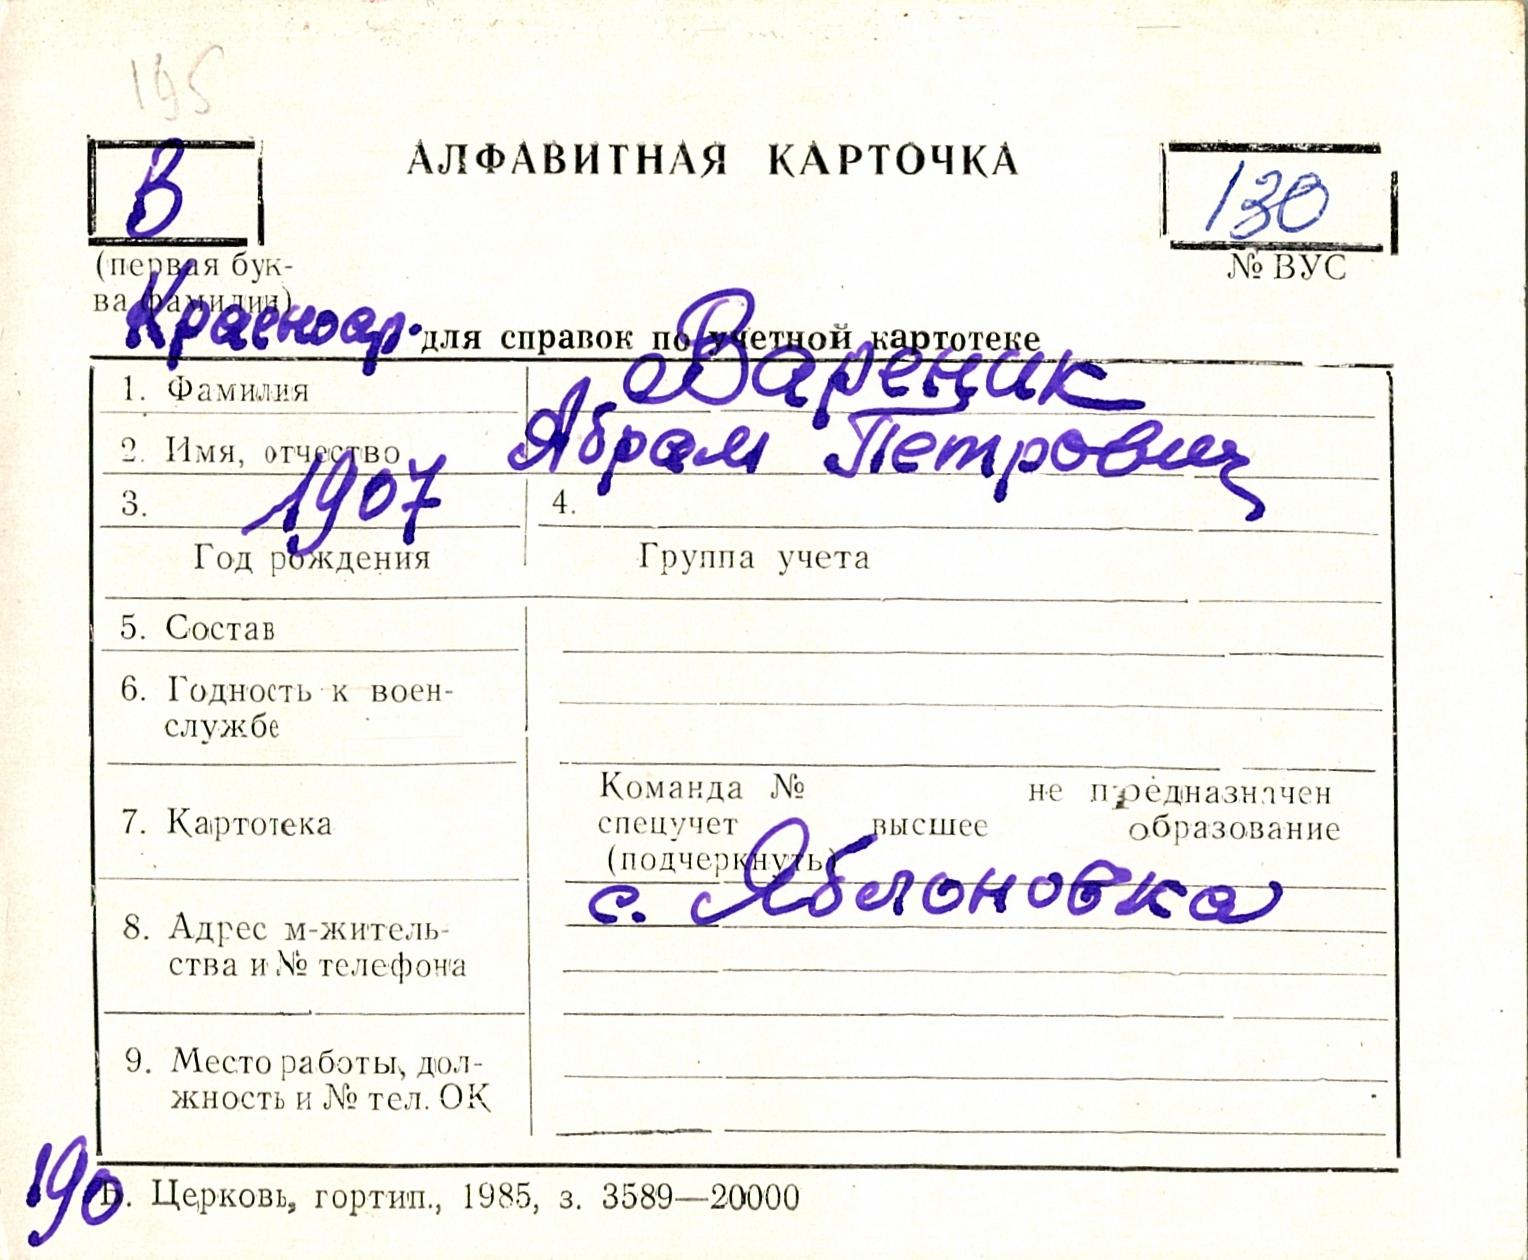 195
В
АЛФАВИТНАЯ КАРТОЧКА
130
(первая бук-
ва фамилии)
№ ВУС
Красноар.
для справок по учетной картотеке
1. Фамилия Вареник
2. Имя, отчество Абрам Петрович
3. 1907 4.
Год рождения Группа учета
5. Состав
6. Годность к воен-
службе
7. Картотека
Команда № не предназначен
спецучет высшее образование
(подчеркнуть)
8. Адрес м-житель-
ства и № телефона
с. Яблоновка
9. Место работы, дол-
жность и № тел. ОК
190
Б. Церковь, гортип., 1985, з. 3589—20000